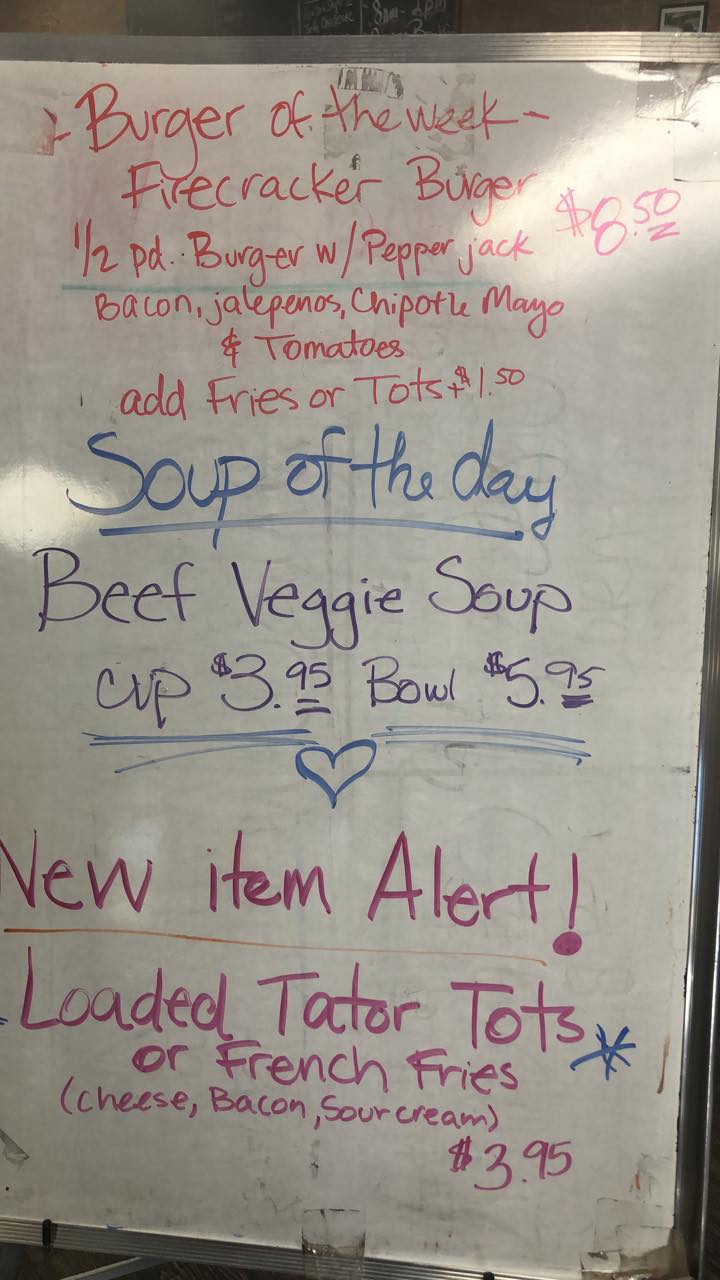 - Burger of the week -
Firecracker Burger
$8.50
1/2 pd.. Burger w/ Pepper jack
Bacon, jalepenos, Chipotle Mayo
& Tomatoes
add Fries or Tots +$1.50
Soup of the day
Beef Veggie Soup
cup $3.95 Bowl $5.95
New item Alert!
Loaded Tator Tots
or French Fries
(cheese, Bacon, Sour cream)
$3.95